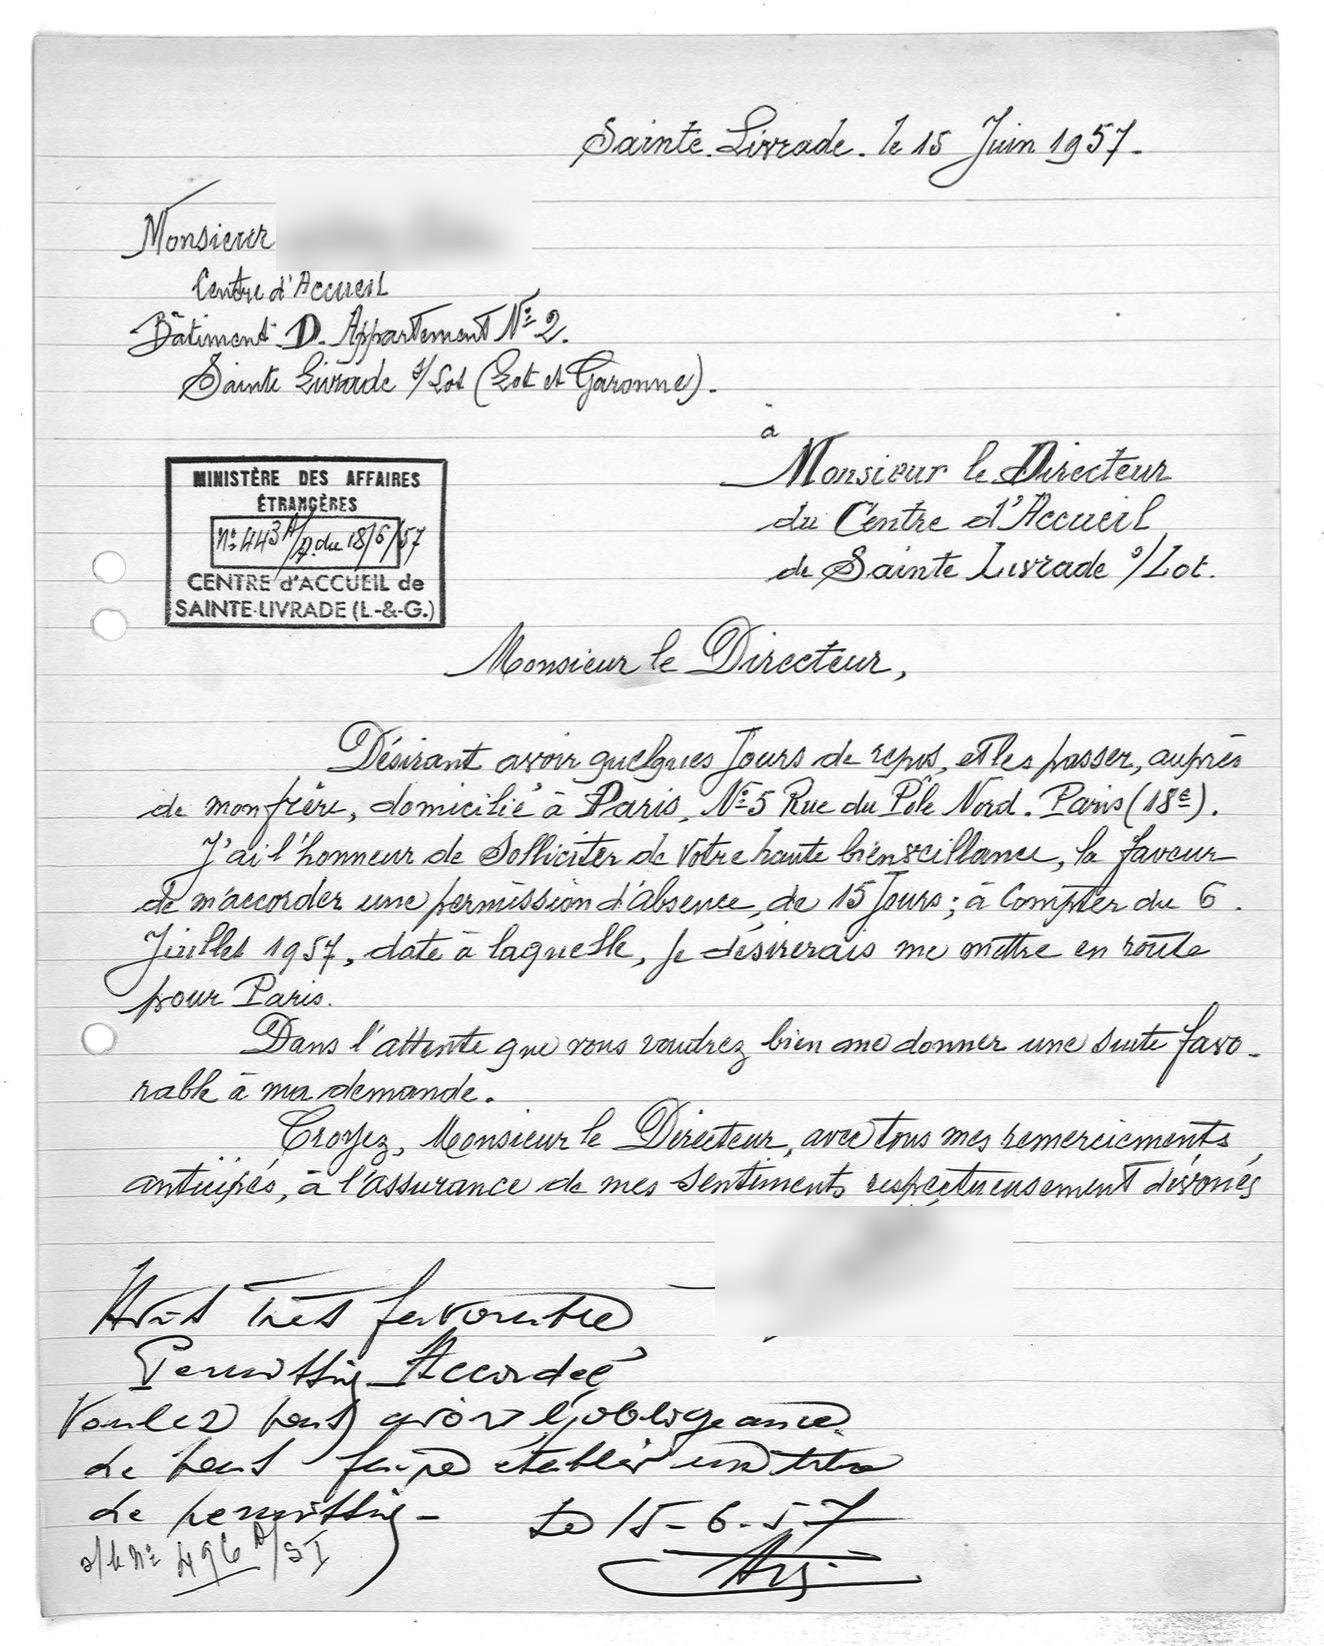 Sainte. Livrade. le 15 Juin 1957.
Monsieur
Centre d'Accueil
Bâtiment D. Appartement N° 2.
Sainte Livrade s/Lot (Lot et Garonne).
à
Monsieur le Directeur
du Centre d'Accueil
de Sainte Livrade s/Lot.
MINISTÈRE DES AFFAIRES
ÉTRANGÈRES
N° 443 A/D. du 18/6/57
CENTRE d'ACCUEIL de
SAINTE-LIVRADE (L.-&-G.)
Monsieur le Directeur,
Désirant avoir quelques Jours de repos, et les passer, auprès
de mon frère, domicilié à Paris, N° 5 Rue du Pôle Nord. Paris (18e).
J'ai l'honneur de Solliciter de Votre haute bienveillance, la faveur
de m'accorder une permission d'absence, de 15 Jours; à Compter du 6.
Juillet 1957, date à laquelle, je désirerais me mettre en route
pour Paris.
Dans l'attente que vous voudrez bien me donner une suite favo-
rable à ma demande.
Croyez, Monsieur le Directeur, avec tous mes remerciements
anticipés, à l'assurance de mes sentiments respectueusement dévoués
Avis très favorable
Permission Accordée
Voulez vous avoir l'obligeance
de faire établir un titre
de permission -
Le 15-6-57
N° 496 A/SI